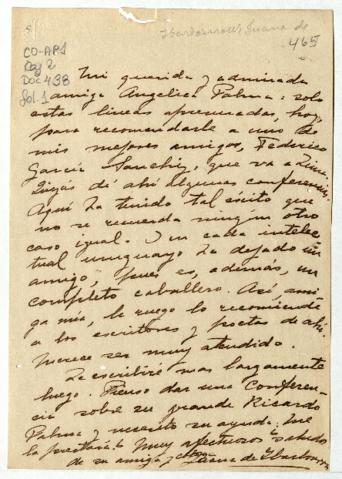 Ibarbourou, Juana de
465
CO-AP1
Caj 2
Doc 438
fol. 1
Mi querida y admirada
amiga Angélica Palma: solo
estas lineas apresuradas, hoy,
para recomendarle a uno de
mis mejores amigos, Federico
García Sanchiz, que va a Lima.
Quizás dé ahí algunas conferencias.
Aquí ha tenido tal éxito que
no se recuerda ningun otro
caso igual. Y en cada intelec-
tual uruguayo ha dejado un
amigo, pues es, además, un
completo caballero. Así, ami
ga mia, le ruego lo recomiende
a los escritores y poetas de ahí.
Merece ser muy atendido.
Le escribiré mas largamente
luego. Pienso dar una Conferen-
cia sobre su grande Ricardo
Palma y necesito su ayuda. Me
la prestará? Muy afectuoso saludo
de su amiga y Juana de Ibarbourou